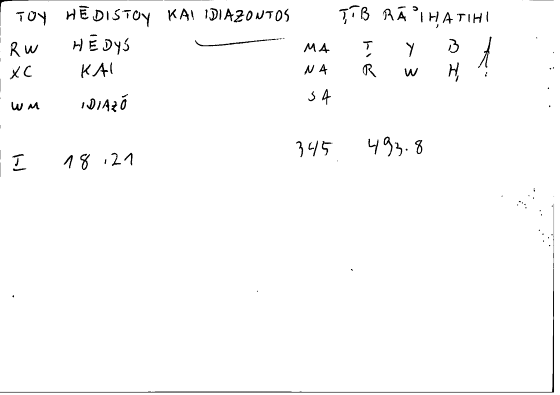 TOY HĒDISTOY KAI IDIAZONTOS ṬĪB RĀʾIḤATIHI
RW HĒDYS MA Ṭ Y B
XC KAI NA R W Ḥ
WM IDIAZŌ SA
I 18.21 345 493.8